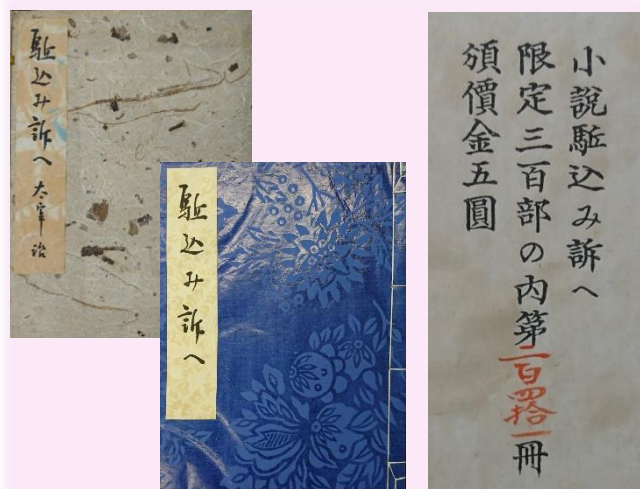 駈込み訴へ 太宰治
駈込み訴へ
小說駈込み訴へ
限定三百部の内第二百四拾一冊
頒價金五圓